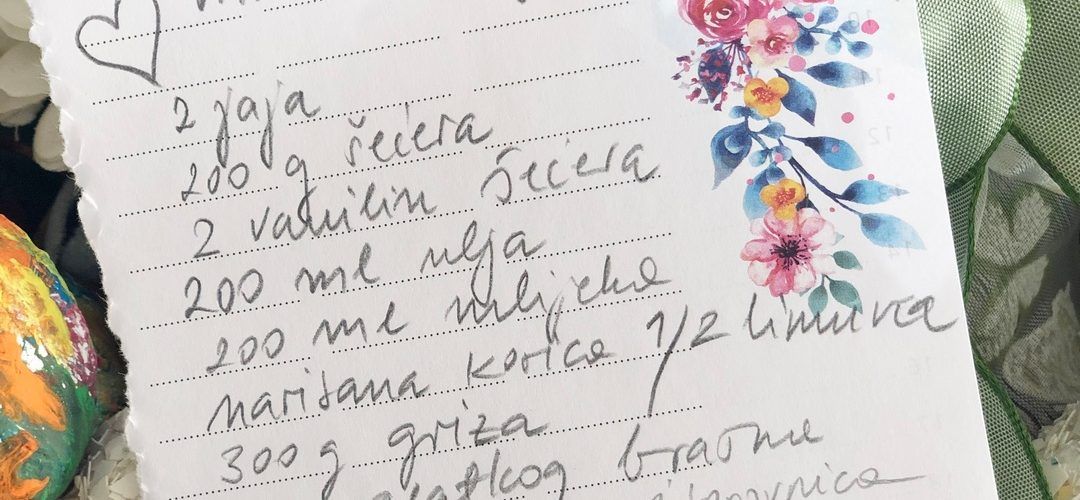 2 jaja
200 g šećera
2 vanilin šećera
200 ml ulja
200 ml mlijeka
naribana korica 1/2 limuna
300 g griza
brašna